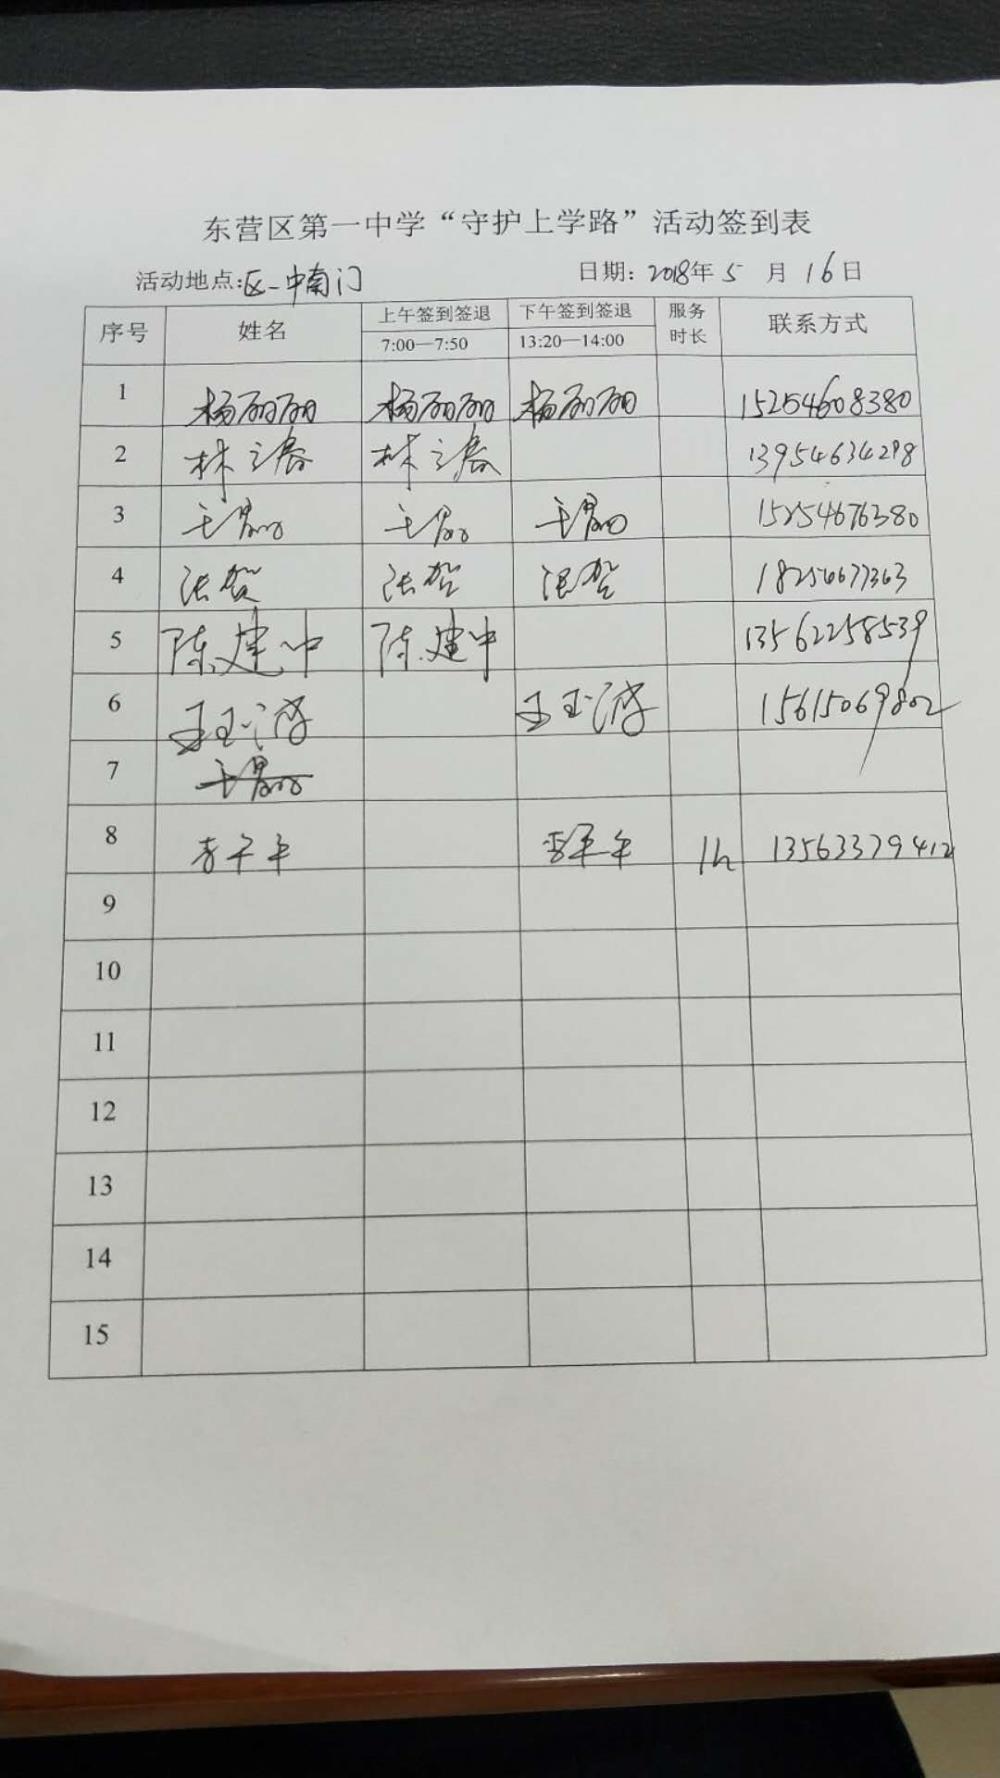 东营区第一中学“守护上学路”活动签到表
活动地点:区一中南门 日期: 2018年 5 月 16日
序号 姓名 上午签到签退 下午签到签退 服务时长 联系方式
7:00—7:50 13:20—14:00
1 杨丽丽 杨丽丽 杨丽丽 15254608380
2 林之春 林之春 13954634298
3 15254676380
4 张贺 张贺 张贺 18254677363
5 陈建中 陈建中 13562258539
6 15615069802
7
8 李平平 李平平 1h 13563379412
9
10
11
12
13
14
15